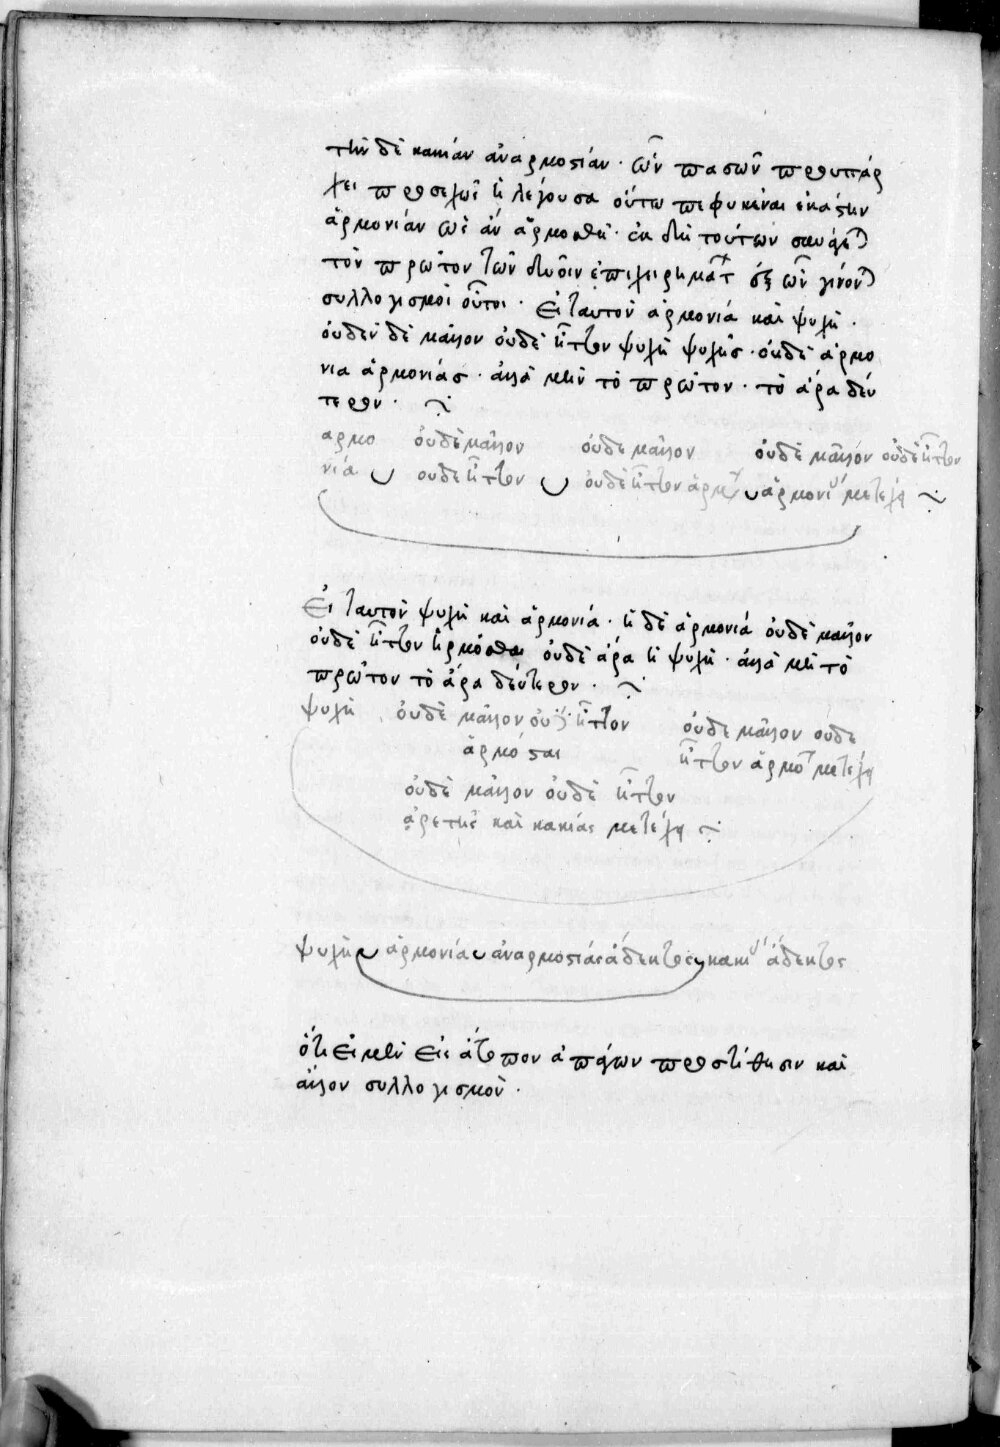 τὴν δὲ κακίαν ἀναρμοστίαν · ὧν πασῶν προυπάρ
χει προσεχῶς ἡ λέγουσα οὕτω πεφυκέναι ἑκάστην
ἁρμονίαν ὡς ἂν ἁρμοσθῇ · ἐκ δὴ τούτων
τὸν πρῶτον τῶν δυοῖν ἐπιχειρημάτ ἐξ ὧν
συλλογισμοὶ οὗτοι · Εἰ ταυτὸν ἁρμονία καὶ ψυχὴ ·
οὐδὲν δὲ μᾶλλον οὐδὲ ἧττον ψυχὴ ψυχῆς · οὐδὲ ἁρμο
νία ἁρμονίας · ἀλλὰ μὴν τὸ πρῶτον · τὸ ἄρα δεύ
τερον ·
αρμο οὐδὲ μᾶλλον οὐδὲ μᾶλλον οὐδὲ μᾶλλον οὐδὲ ἧττον
νία οὐδὲ ἧττον οὐδὲ ἧττον ἁρμ ἁρμονι μετέχῃ
Εἰ ταυτὸν ψυχὴ καὶ ἁρμονία · ἡ δὲ ἁρμονία οὐδὲ μᾶλλον
οὐδὲ ἧττον ἡρμόσθαι οὐδὲ ἄρα ἡ ψυχὴ · ἀλλὰ μὴ τὸ
πρῶτον τὸ ἄρα δεύτερον ·
ψυχὴ οὐδὲ μᾶλλον οὐδ ἧττον οὐδὲ μᾶλλον οὐδὲ
ἅρμοσται ἧττον ἁρμο μετέχῃ
οὐδὲ μᾶλλον οὐδὲ ἧττον
ἀρετῆς καὶ κακίας μετέχῃ
ψυχὴ ἁρμονία ἀναρμοστίας ἄδεκτος κακι ἄδεκτος
ὅτι εἰ μὲν εἰς ἄτοπον ἀπάγων προστίθησιν καὶ
ἄλλον συλλογισμὸν ·